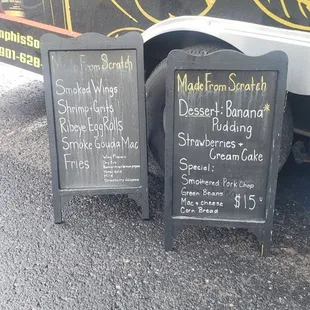 mphisSoul
901-628-
Made From Scratch
Smoked Wings
Shrimp+Grits
Ribeye EggRolls
Smoke GoudaMac
Fries
Made From Scratch
Dessert: Banana
Pudding
Strawberries +
Cream Cake
Special:
Smothered Pork Chop
Green Beans
Mac + cheese
Corn Bread
$15